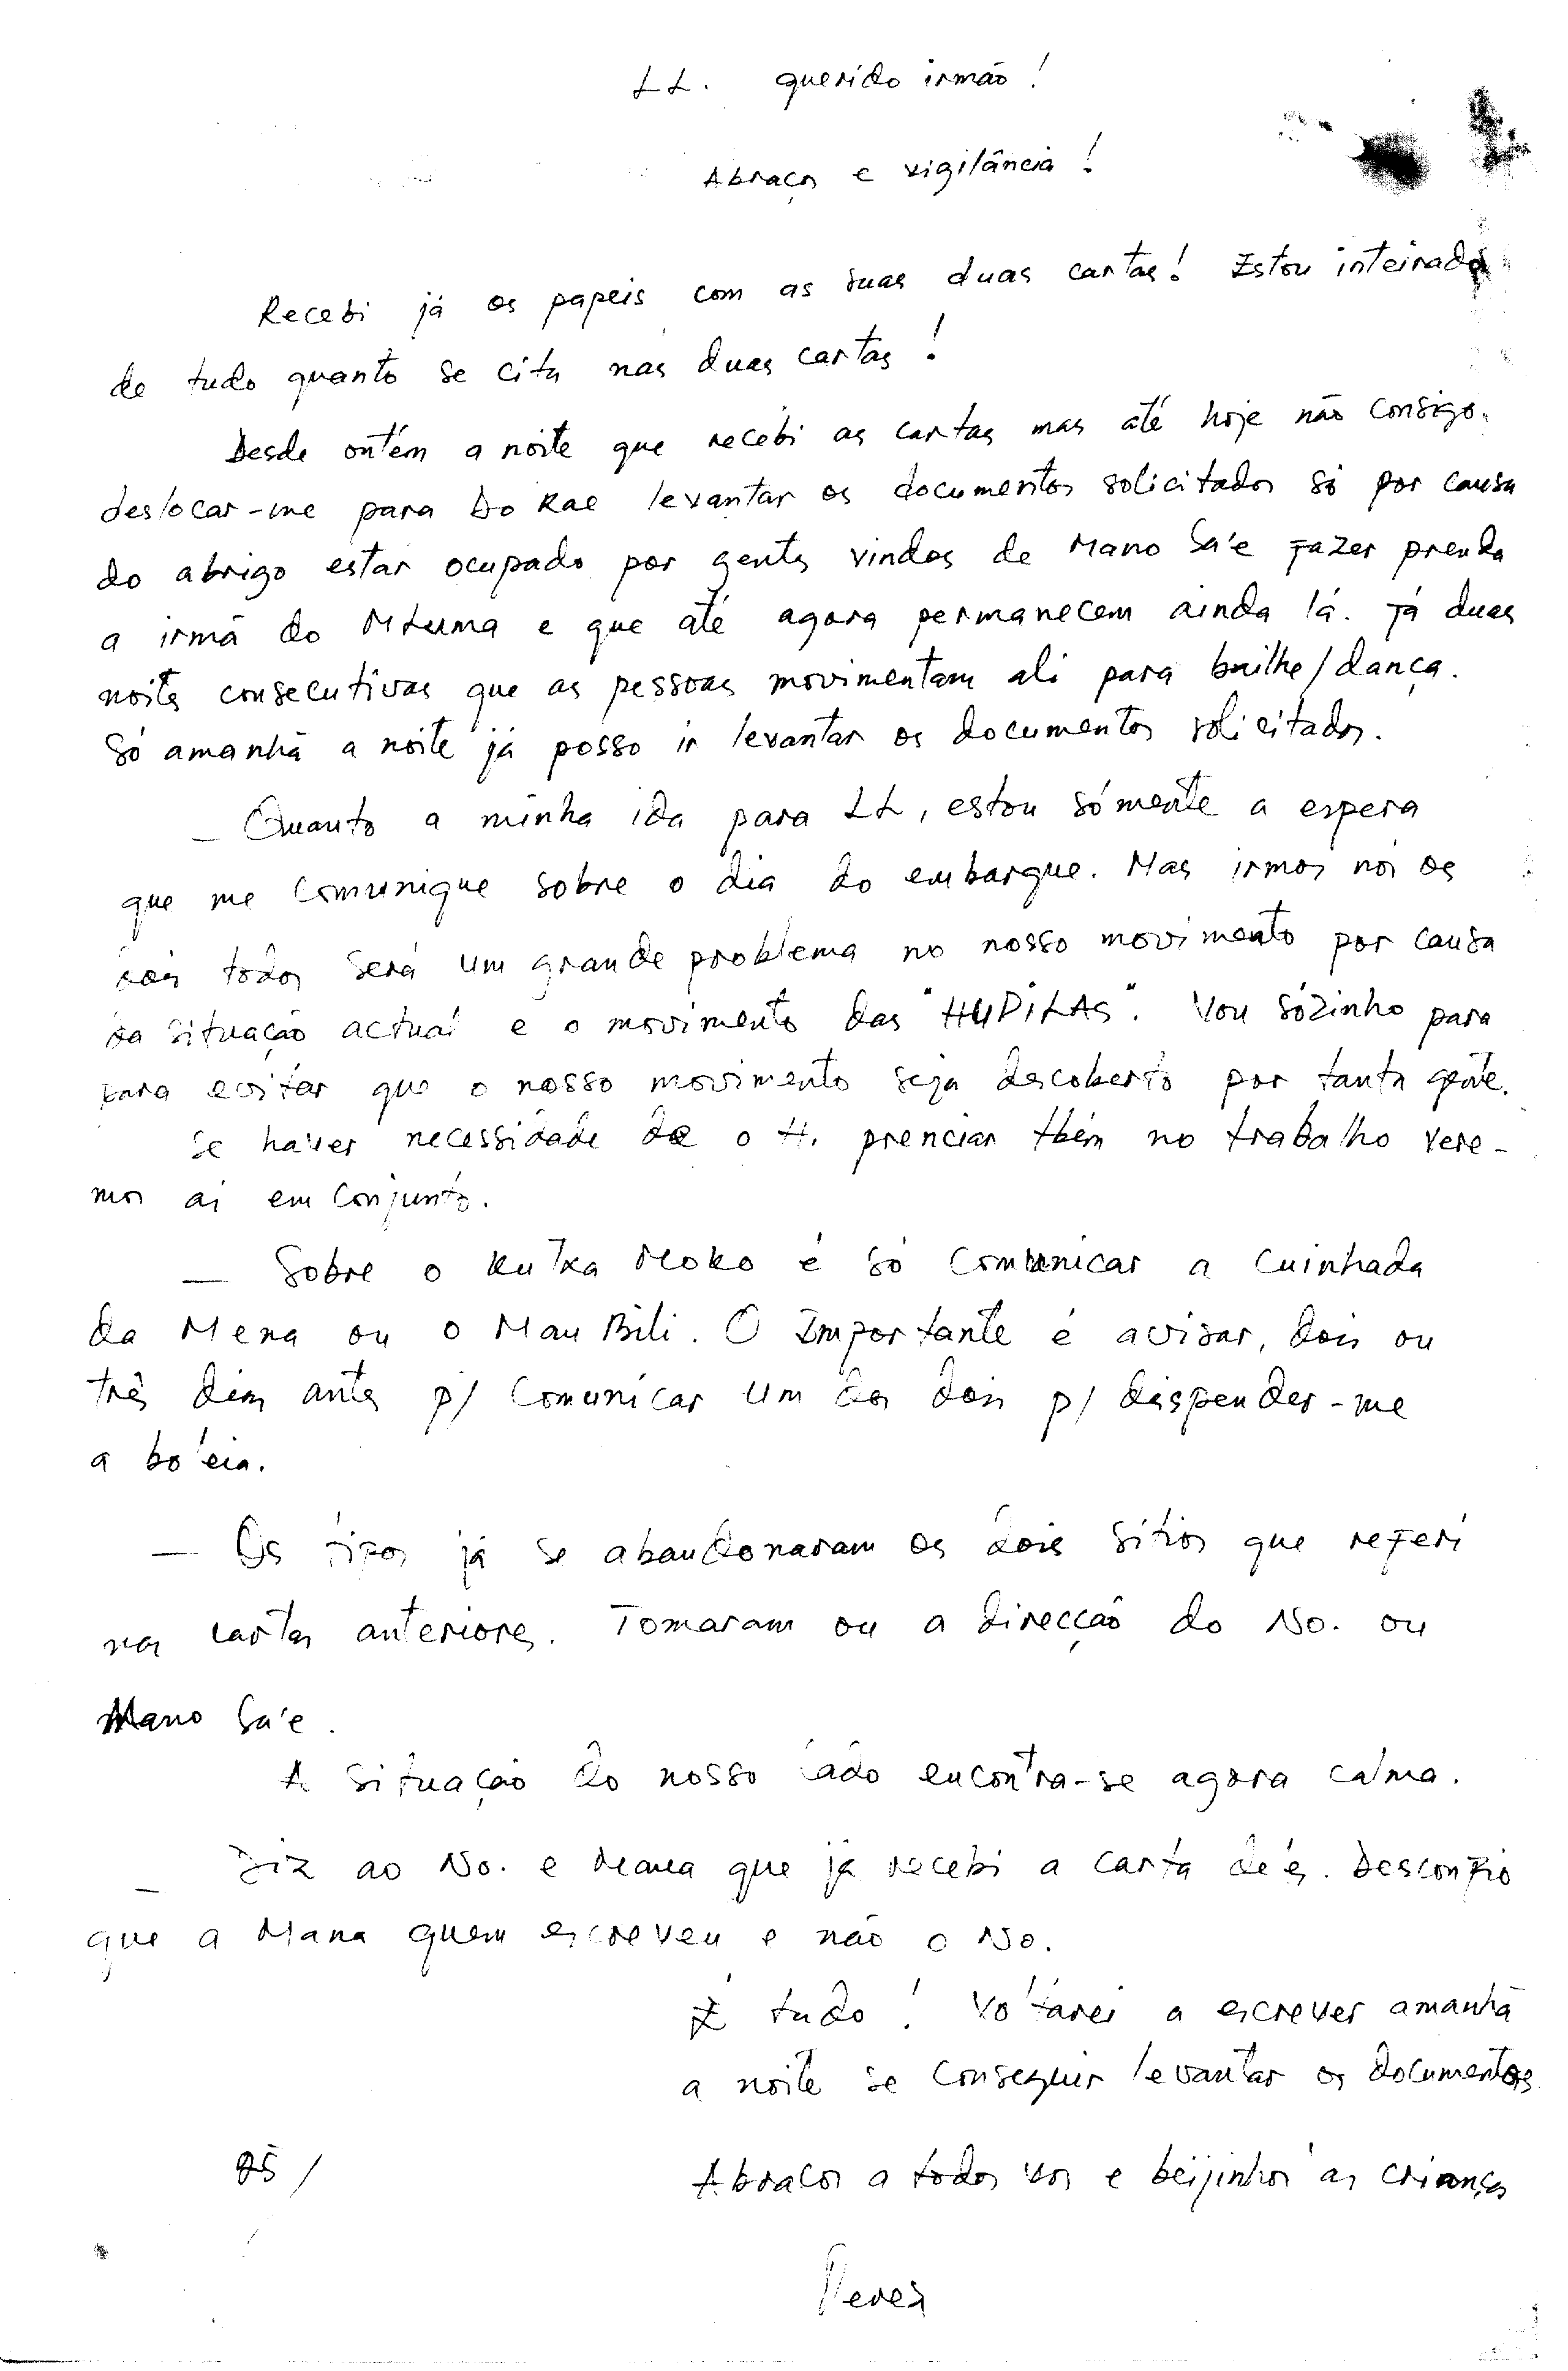 LL. querido irmão!
Abraços e vigilância!
Recebi já os papeis com as suas duas cartas! Estou inteirado
de tudo quanto se cita nas duas cartas!
Desde ontém a noite que recebi as cartas mas até hoje não consigo
deslocar-me para Do Rae levantar os documentos solicitados só por causa
do abrigo estar ocupado por gentes vindos de Mano Sa'e fazer prenda
a irmã do e que até agora permanecem ainda lá. Já duas
noites consecutivas que as pessoas movimentam ali para bailhe/dança.
Só amanhã a noite já posso ir levantar os documentos solicitados.
- Quanto a minha ida para LL, estou sómente a espera
que me comunique sobre o dia do embarque. Mas irmos nós os
dois todos será um grande problema no nosso movimento por causa
da situação actual e o movimento das "HUDILAS". Vou sózinho para
para evitar que o nosso movimento seja descoberto por tanta gente.
Se haver necessidade de o H. prenciar tbém no trabalho vere-
mos aí em conjunto.
- Sobre o Moko é só comunicar a cuinhada
da Mena ou o Mau Bili. O importante é avisar, dois ou
três dias antes p/ comunicar um dos dois p/ dispender-me
a bóleia.
- Os tipos já se abandonaram os dois sítios que referi
nas cartas anteriores. Tomaram ou a direcção do No. ou
Mano Sa'e.
A situação do nosso lado encontra-se agora calma.
- Diz ao No. e Mana que já recebi a carta dê's. Desconfio
que a Mana quem escreveu e não o No.
É tudo! Voltarei a escrever amanhã
a noite se conseguir levantar os documentos
Abraços a todos vos e beijinhos às crianças